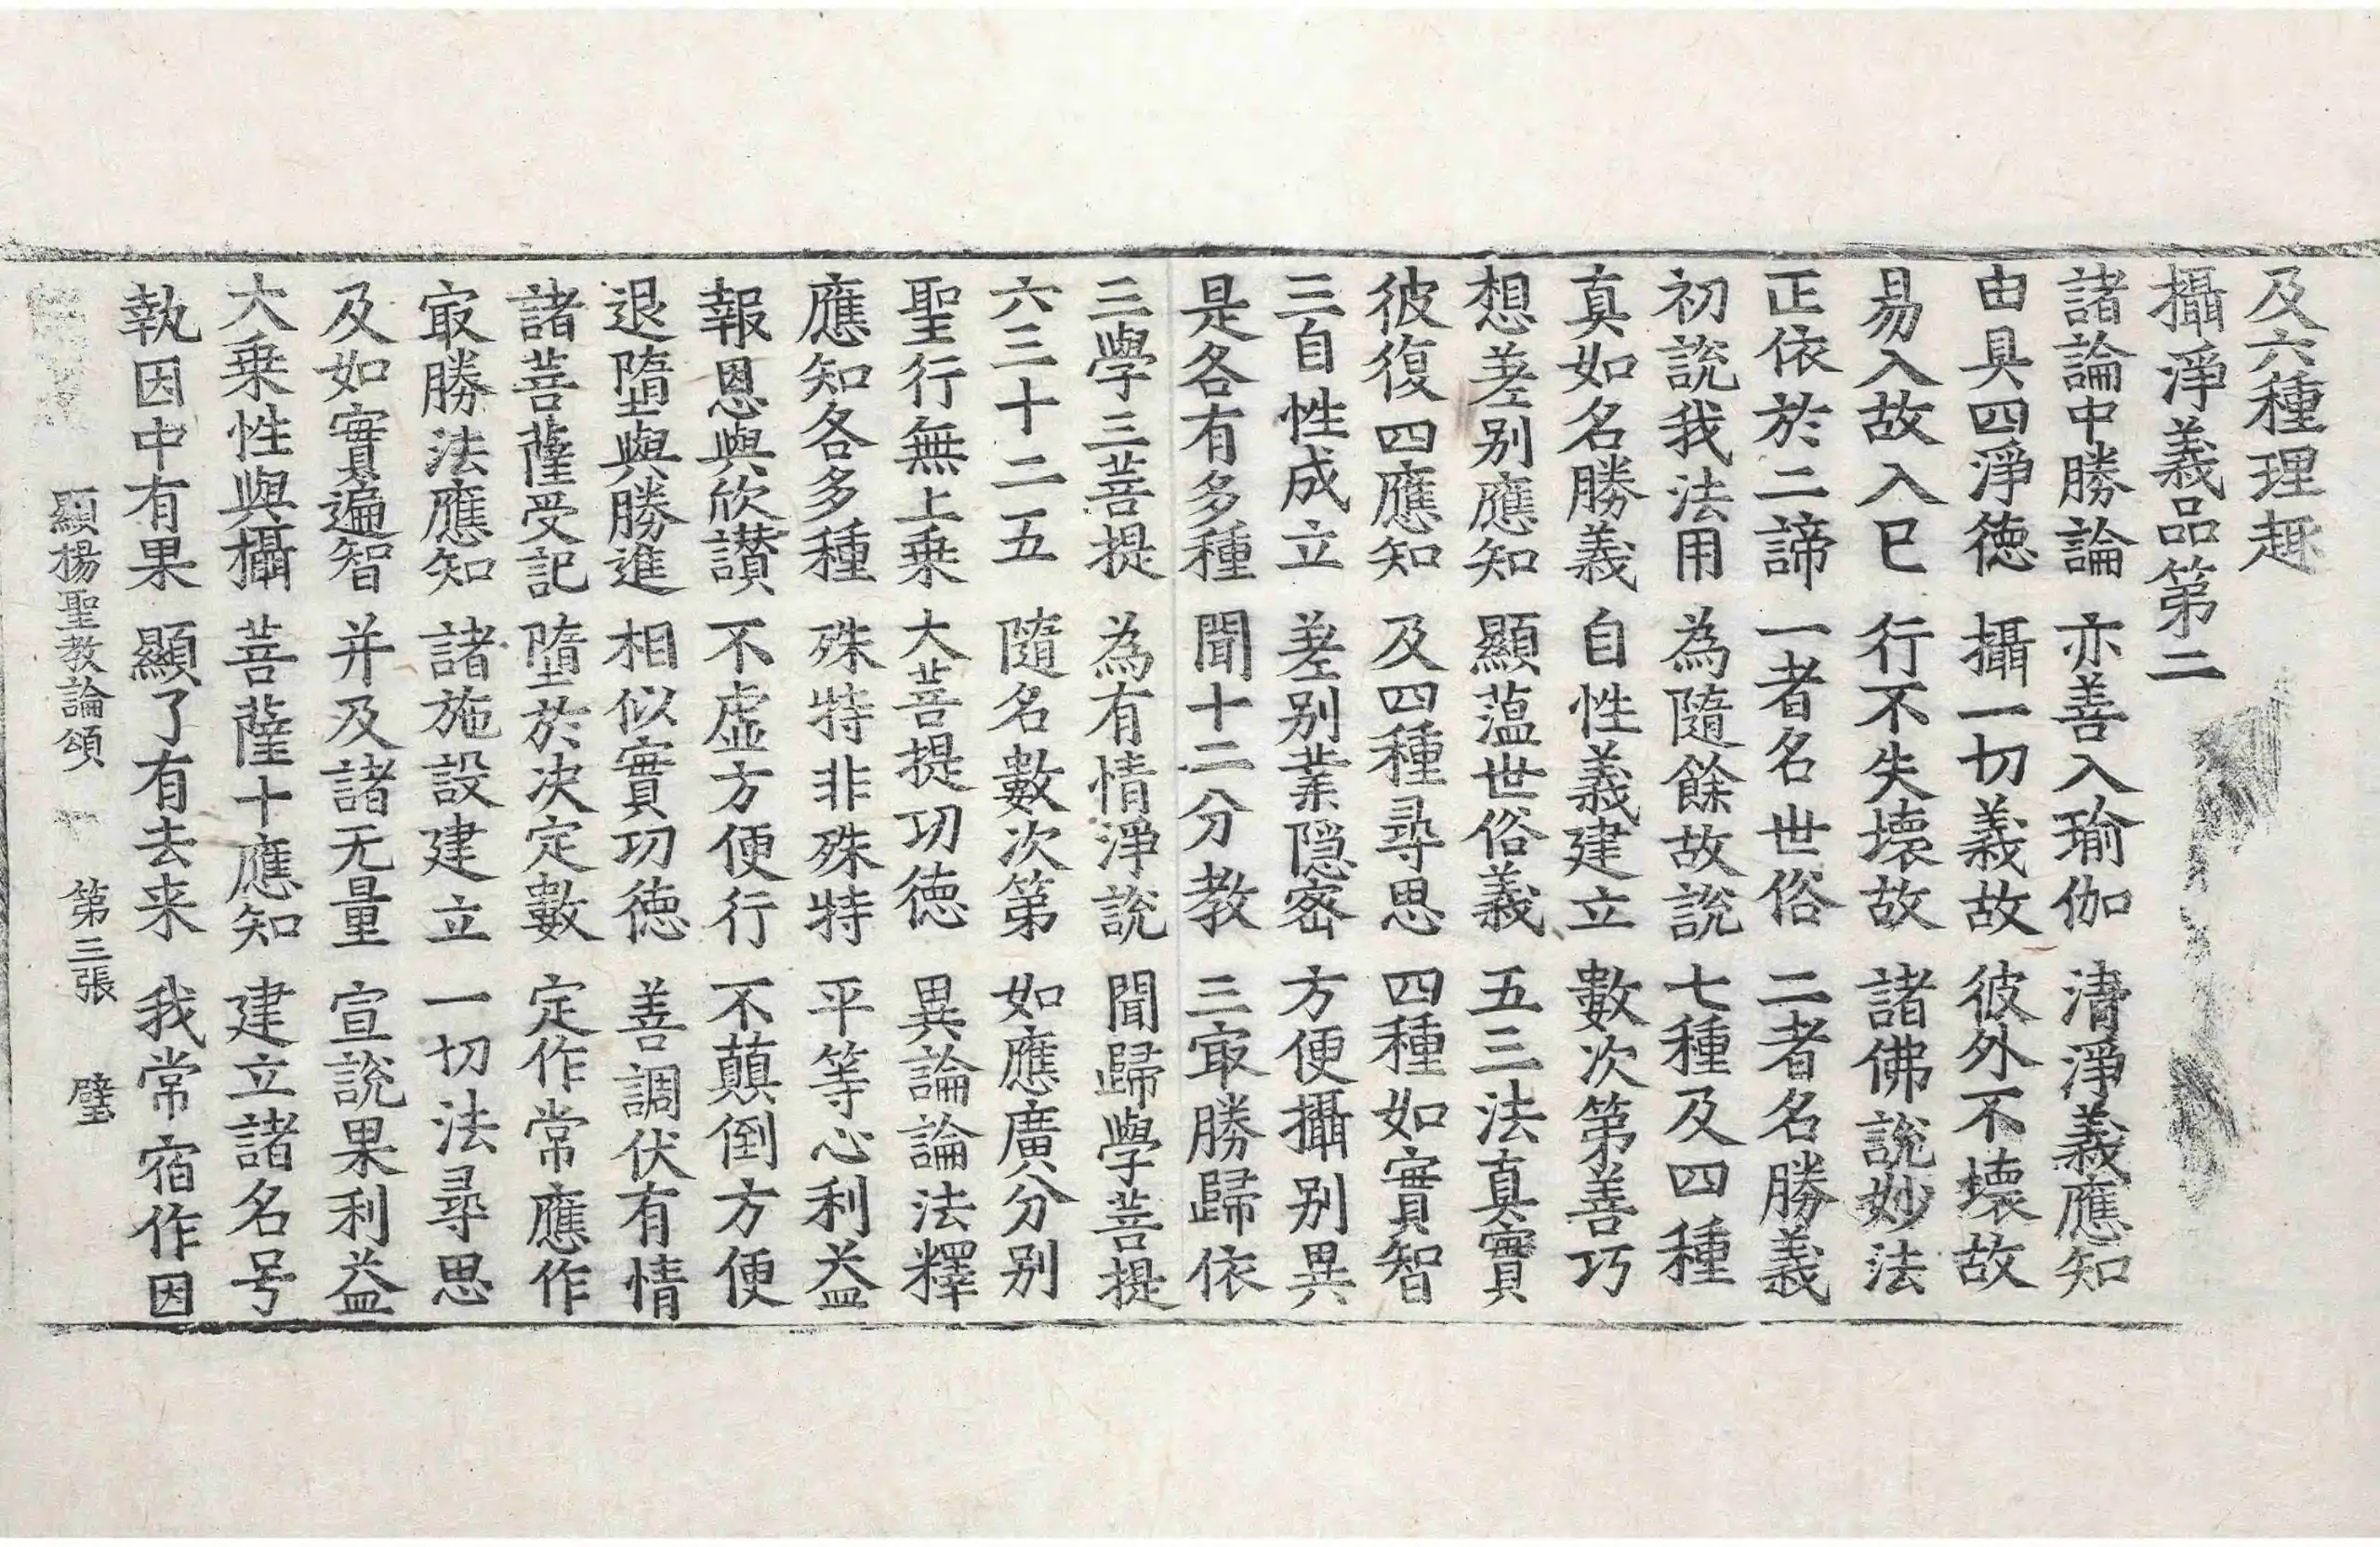 及六種理趣
攝淨義品第二
諸論中勝論 亦善入瑜伽 清淨義應知
由具四淨德 攝一切義故 彼外不壞故
易入故入巳 行不失壞故 諸佛說妙法
正依於二諦 一者名世俗 二者名勝義
初說我法用 為隨餘故說 七種及四種
真如名勝義 自性義建立 數次第善巧
想差别應知 顯薀世俗義 五三法真實
彼復四應知 及四種尋思 四種如實智
三自性成立 差别業隠密 方便攝别異
是各有多種 聞十二分教 三㝡勝歸依
三學三菩提 為有情淨說 聞歸學菩提
六三十二五 隨名數次第 如應廣分别
聖行無上乗 大菩提功德 異論論法釋
應知各多種 殊特非殊特 平等心利益
報恩與欣讃 不虚方便行 不顛倒方便
退墮與勝進 相似實功徳 善調伏有情
諸菩薩受記 墮於决定數 定作常應作
㝡勝法應知 諸施設建立 一切法尋思
及如實遍智 并及諸无量 宣說果利益
大乗性與攝 菩薩十應知 建立諸名号
執因中有果 顯了有去来 我常宿作因
顯揚聖教論頌 第三張 璧